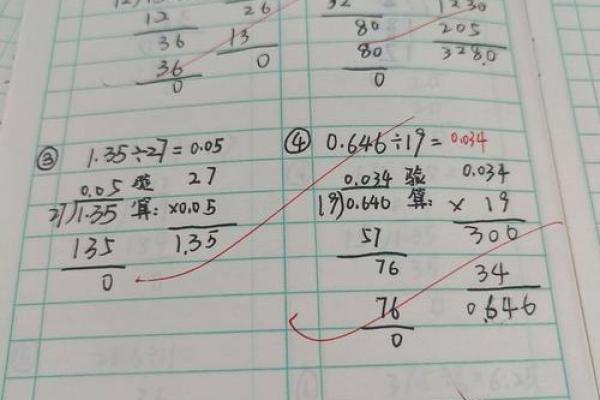 12
26
36
13
36
0
0
1230
80
205
80
3280
0
③ 1.35÷27=0.05
0.05 验 27
27)1.35 算: ×0.05
135
1.35
0
④ 0.646÷19=0.034
0.034 验 0.034
19)0.646 算: × 19
57
300
76
34
76
0.646
0